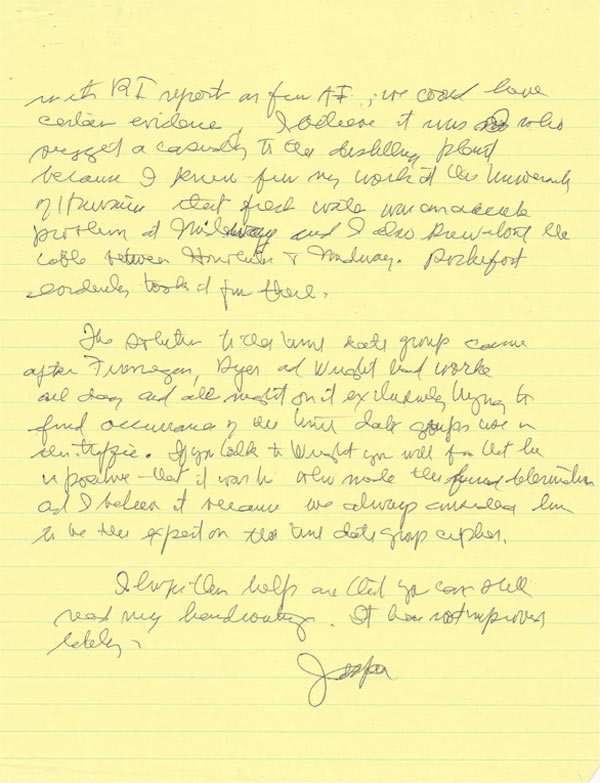 with RI report as from AF, we could have
certain evidence, I believe it was I who
suggest a casualty to the distilling plant
because I knew from my work at the University
of Hawaii that fresh water was an acute
problem at Midway and I also knew about the
cable between Honolulu & Midway. Rochefort
took it from there.
The solution to the time date group came
after Finnegan, Dyer and Wright had worked
all day and all night on it exclusively trying to
find occurrence of the time date groups use in
the traffic. If you talk to Wright you will find that he
is positive that it was he who made the final determination
and I believe it because we always considered him
to be the expert on the time date group cipher.
I hope this helps and that you can still
read my handwriting. It has not improved
lately.
Jasper